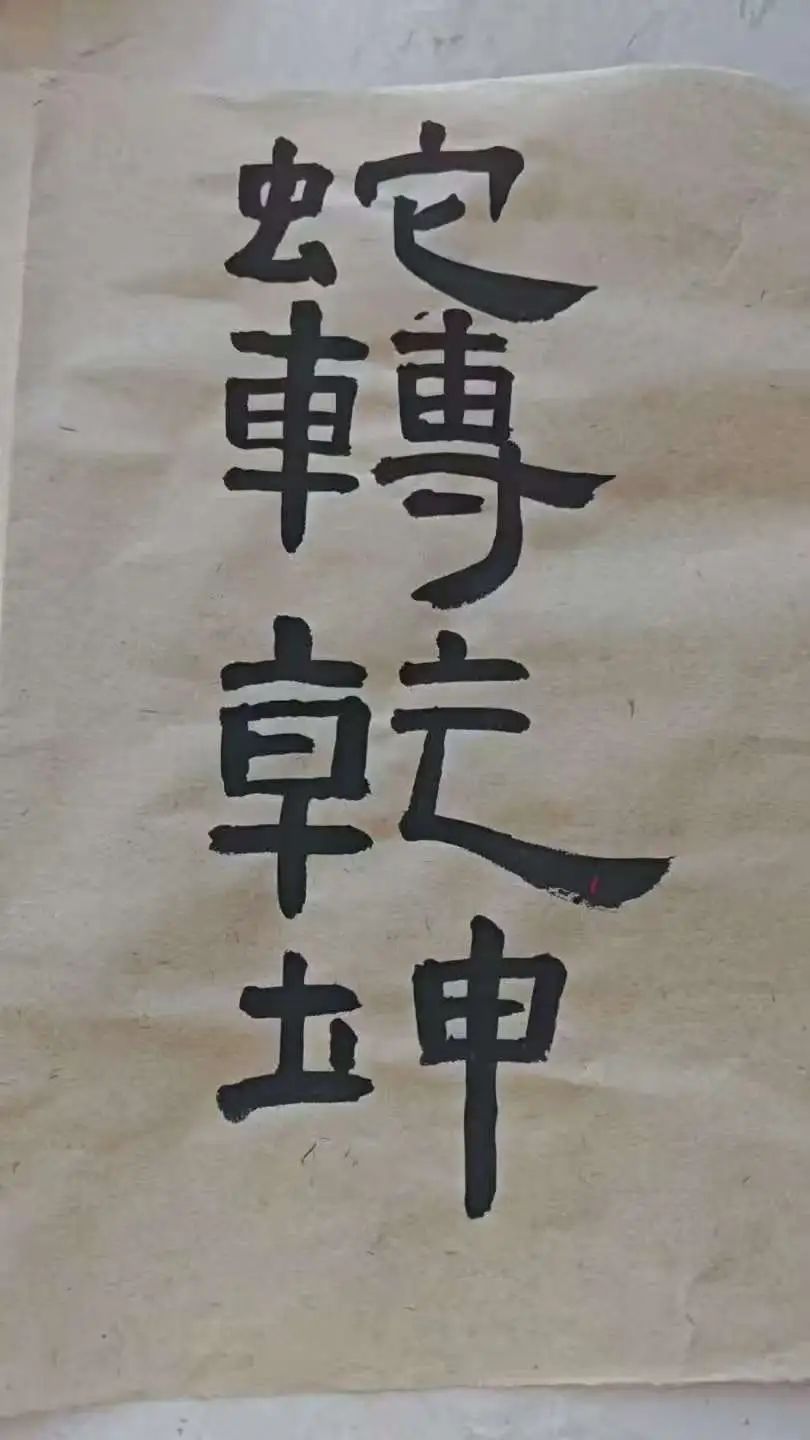 蛇轉乾坤